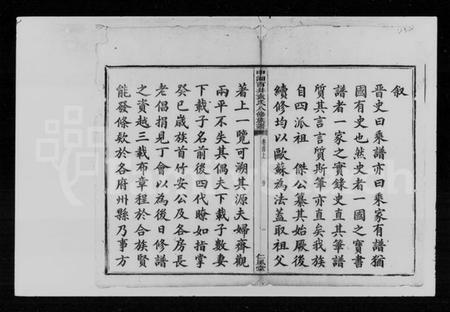 叙
晉史曰乘譜亦曰乘家有譜猶
國有史也然史者一國之寶書
譜者一家之實錄史直其筆譜
質其言言質斯筆亦直矣我族
自四派祖 傑公纂其始厥後
續修均以歐蘇為法蓋取祖父
卷首上
著上一覽可溯其源夫婦齊觀
兩平不失其偶夫下載子數妻
下載子名前後四代瞭如指掌
癸巳歲族首竹安公及各房長
老倡捐見丁會以為後日修譜
之資越三載布章程於合族賢
能發條款於各府州縣乃事方